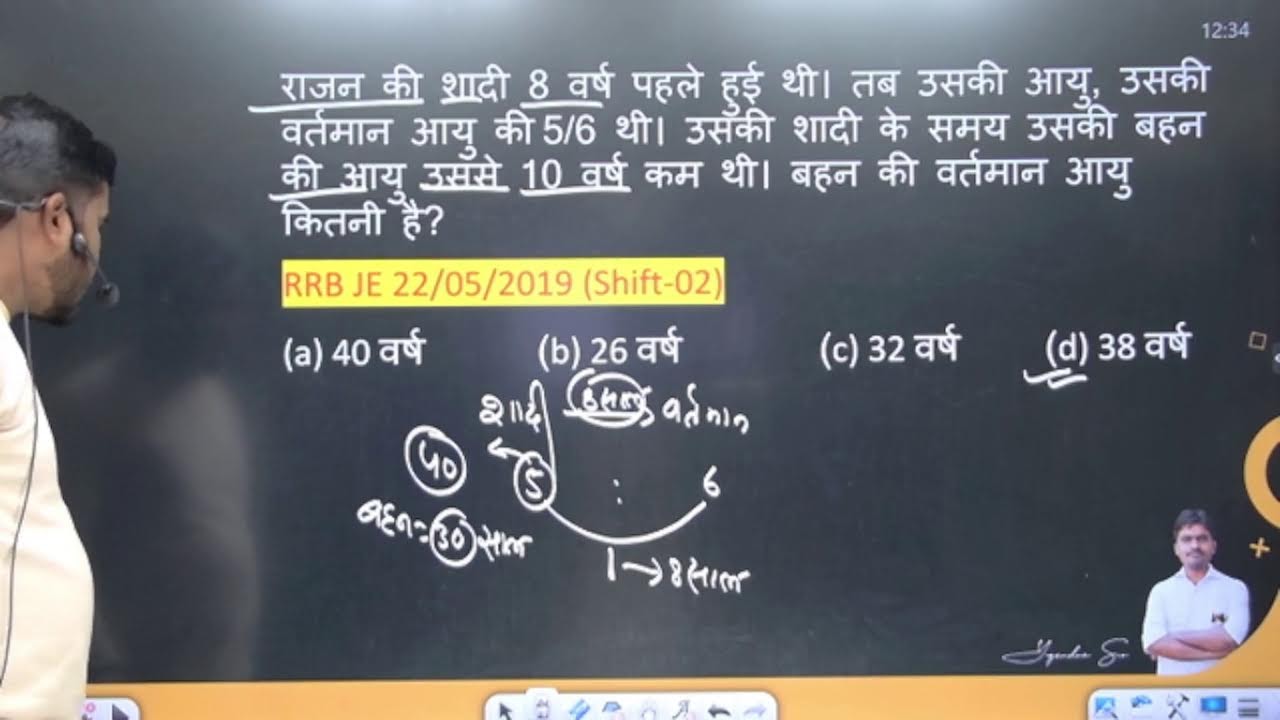 12:34
राजन की शादी 8 वर्ष पहले हुई थी। तब उसकी आयु, उसकी
वर्तमान आयु की 5/6 थी। उसकी शादी के समय उसकी बहन
की आयु उससे 10 वर्ष कम थी। बहन की वर्तमान आयु
कितनी है?
RRB JE 22/05/2019 (Shift-02)
(a) 40 वर्ष (b) 26 वर्ष (c) 32 वर्ष (d) 38 वर्ष
शादी 8साल वर्तमान
40 5 : 6
बहन = 30 साल
1 → 8साल